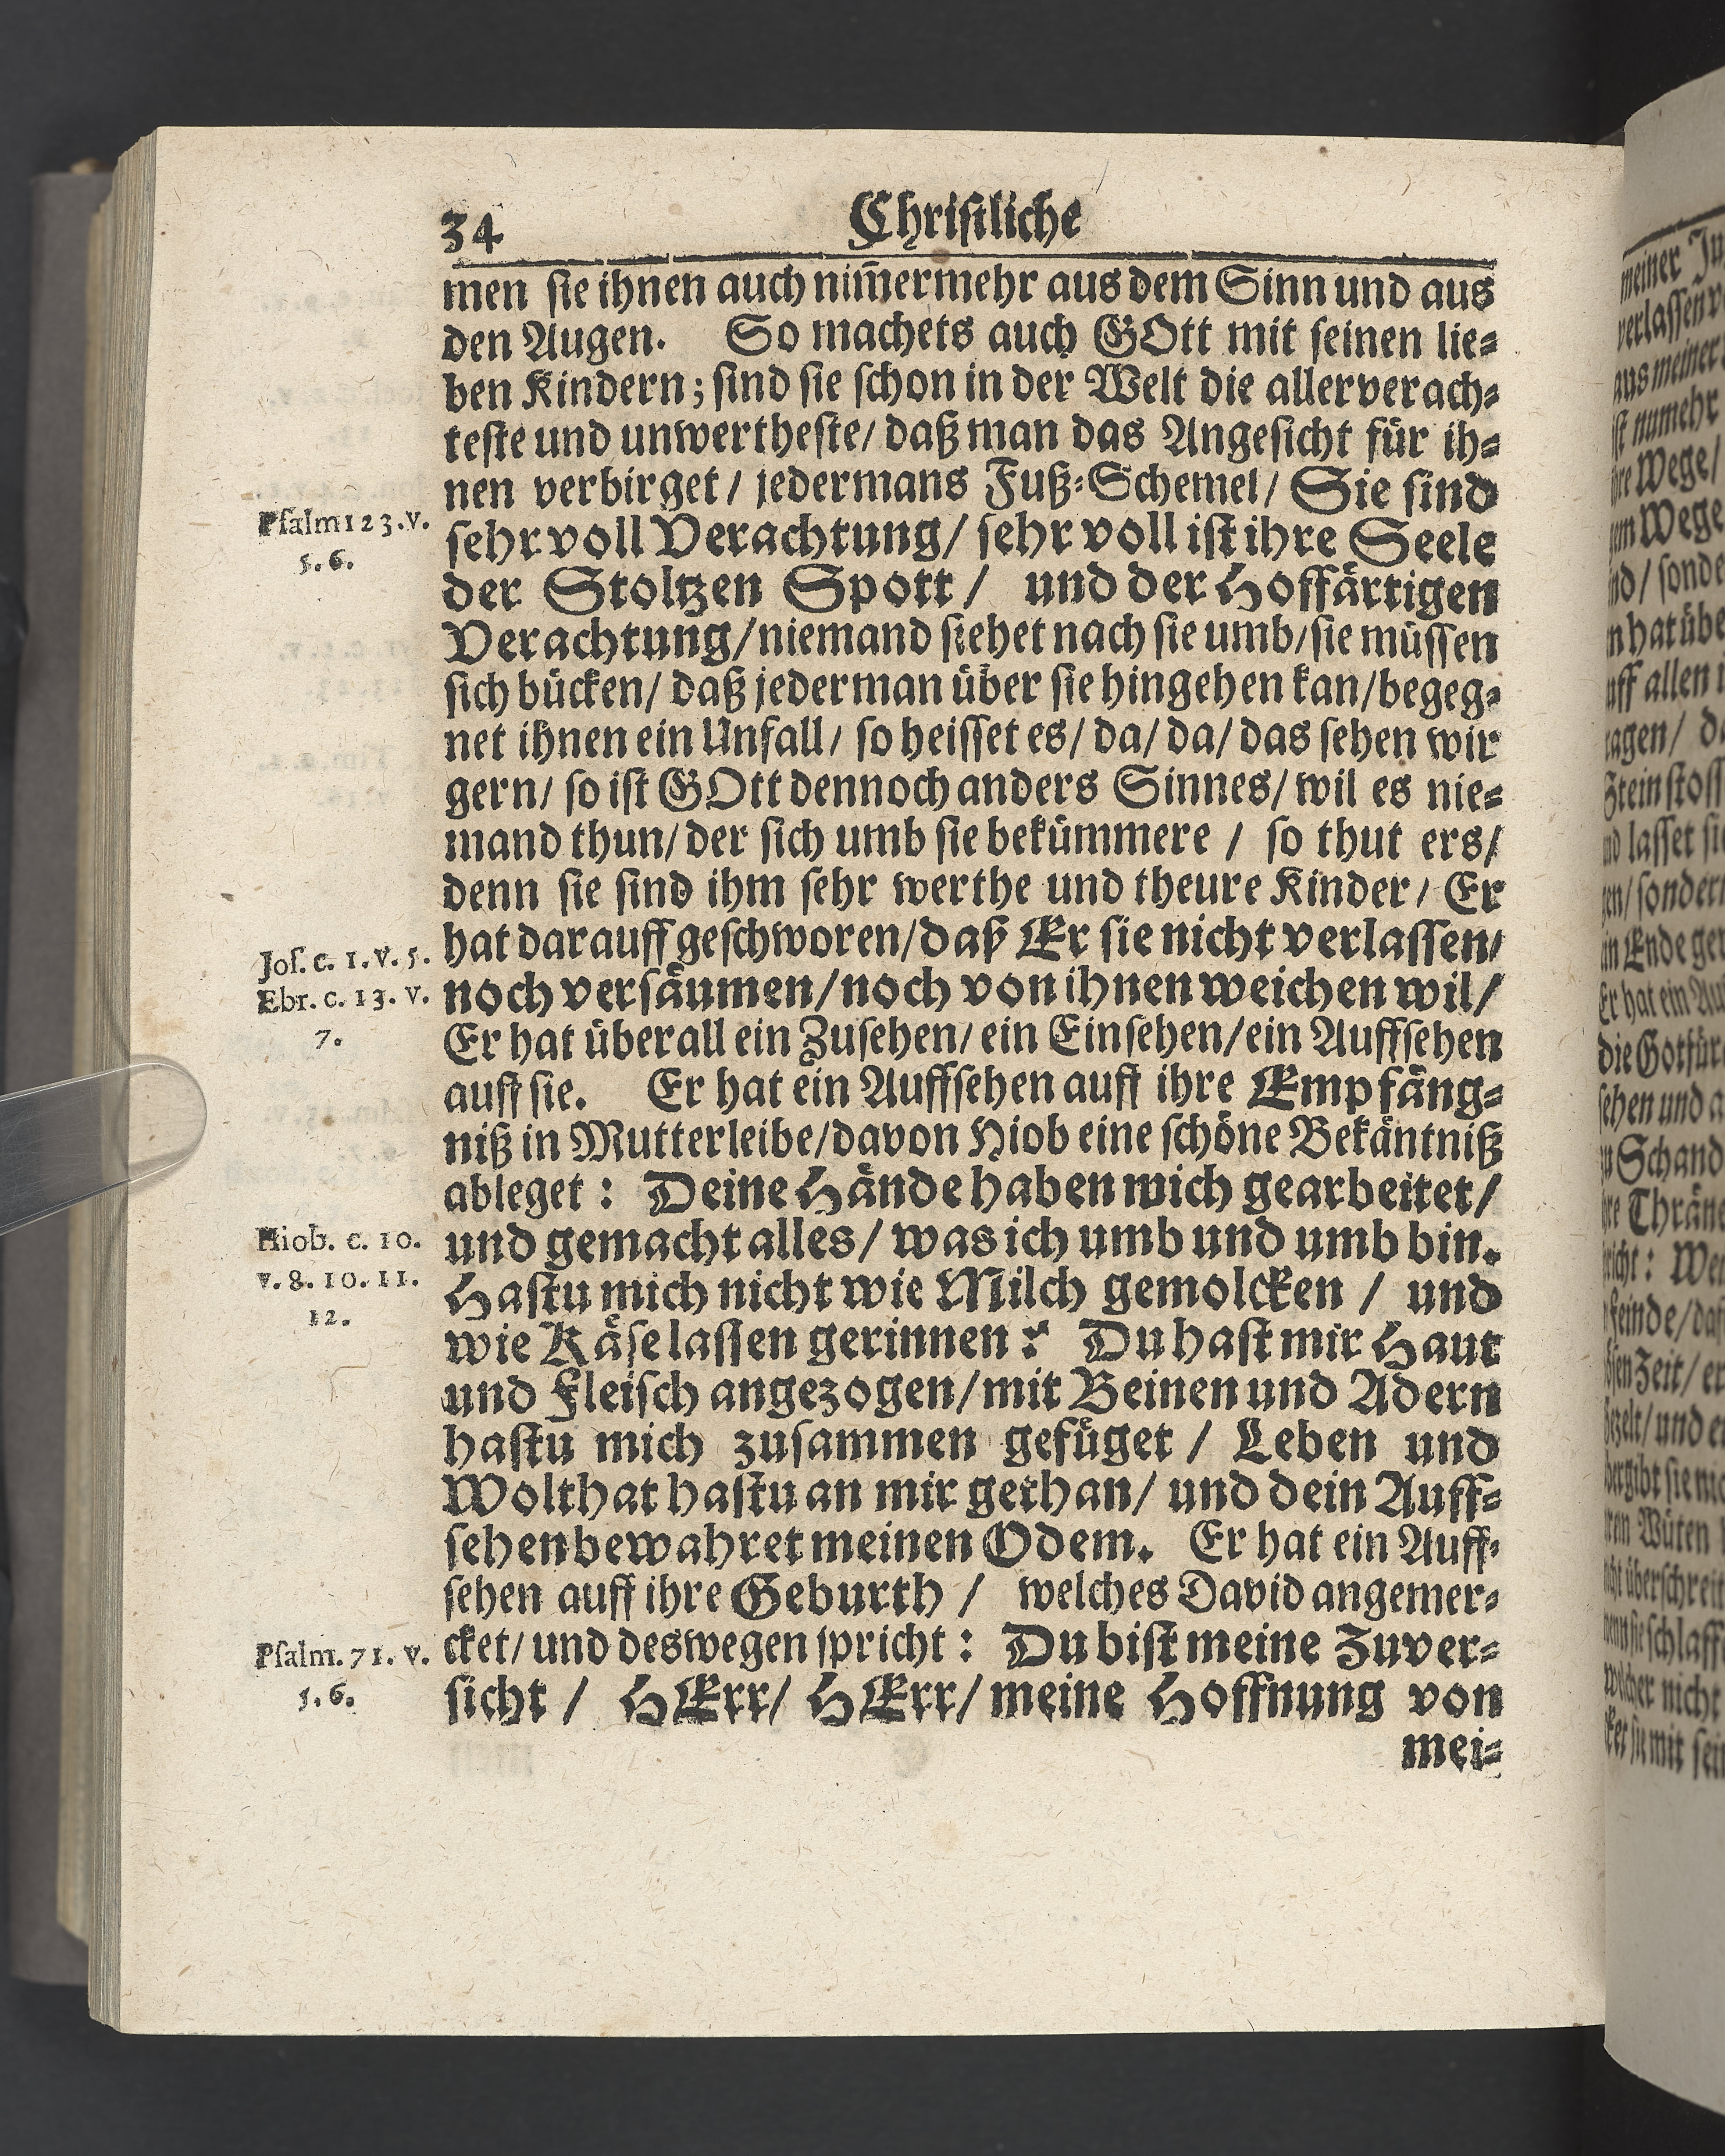 34
Christliche
men sie ihnen auch nim̃ermehr aus dem Sinn und aus
den Augen. So machets auch GOtt mit seinen lie-
ben Kindern; sind sie schon in der Welt die allerverach-
teste und unwertheste/ daß man das Angesicht für ih-
nen verbirget/ jedermans Fuß-Schemel/ Sie sind
Psalm 123. v.
5. 6.
sehr voll Verachtung/ sehr voll ist ihre Seele
der Stoltzen Spott/ und der Hoffärtigen
Verachtung/ niemand siehet nach sie umb/ sie müssen
sich bücken/ daß jederman über sie hingehen kan/ begeg-
net ihnen ein Unfall/ so heisset es/ da/ da/ das sehen wir
gern/ so ist GOtt dennoch anders Sinnes/ wil es nie-
mand thun/ der sich umb sie bekümmere/ so thut ers/
denn sie sind ihm sehr werthe und theure Kinder/ Er
Jos. c. 1. v. 5.
Ebr. c. 13. v.
7.
hat darauff geschworen/ daß Er sie nicht verlassen/
noch versäumen/ noch von ihnen weichen wil/
Er hat überall ein Zusehen/ ein Einsehen/ ein Auffsehen
auff sie. Er hat ein Auffsehen auff ihre Empfäng-
niß in Mutterleibe/ davon Hiob eine schöne Bekäntniß
ableget: Deine Hände haben mich gearbeitet/
Hiob. c. 10.
v. 8. 10. 11.
12.
und gemacht alles/ was ich umb und umb bin.
Hastu mich nicht wie Milch gemolcken/ und
wie Käse lassen gerinnen? Du hast mir Haut
und Fleisch angezogen/ mit Beinen und Adern
hastu mich zusammen gefüget/ Leben und
Wolthat hastu an mir gethan/ und dein Auff-
sehen bewahret meinen Odem. Er hat ein Auff-
sehen auff ihre Geburth/ welches David angemer-
Psalm. 71. v.
5. 6.
cket/ und deswegen spricht: Du bist meine Zuver-
sicht/ HErr/ HErr/ meine Hoffnung von
mei-